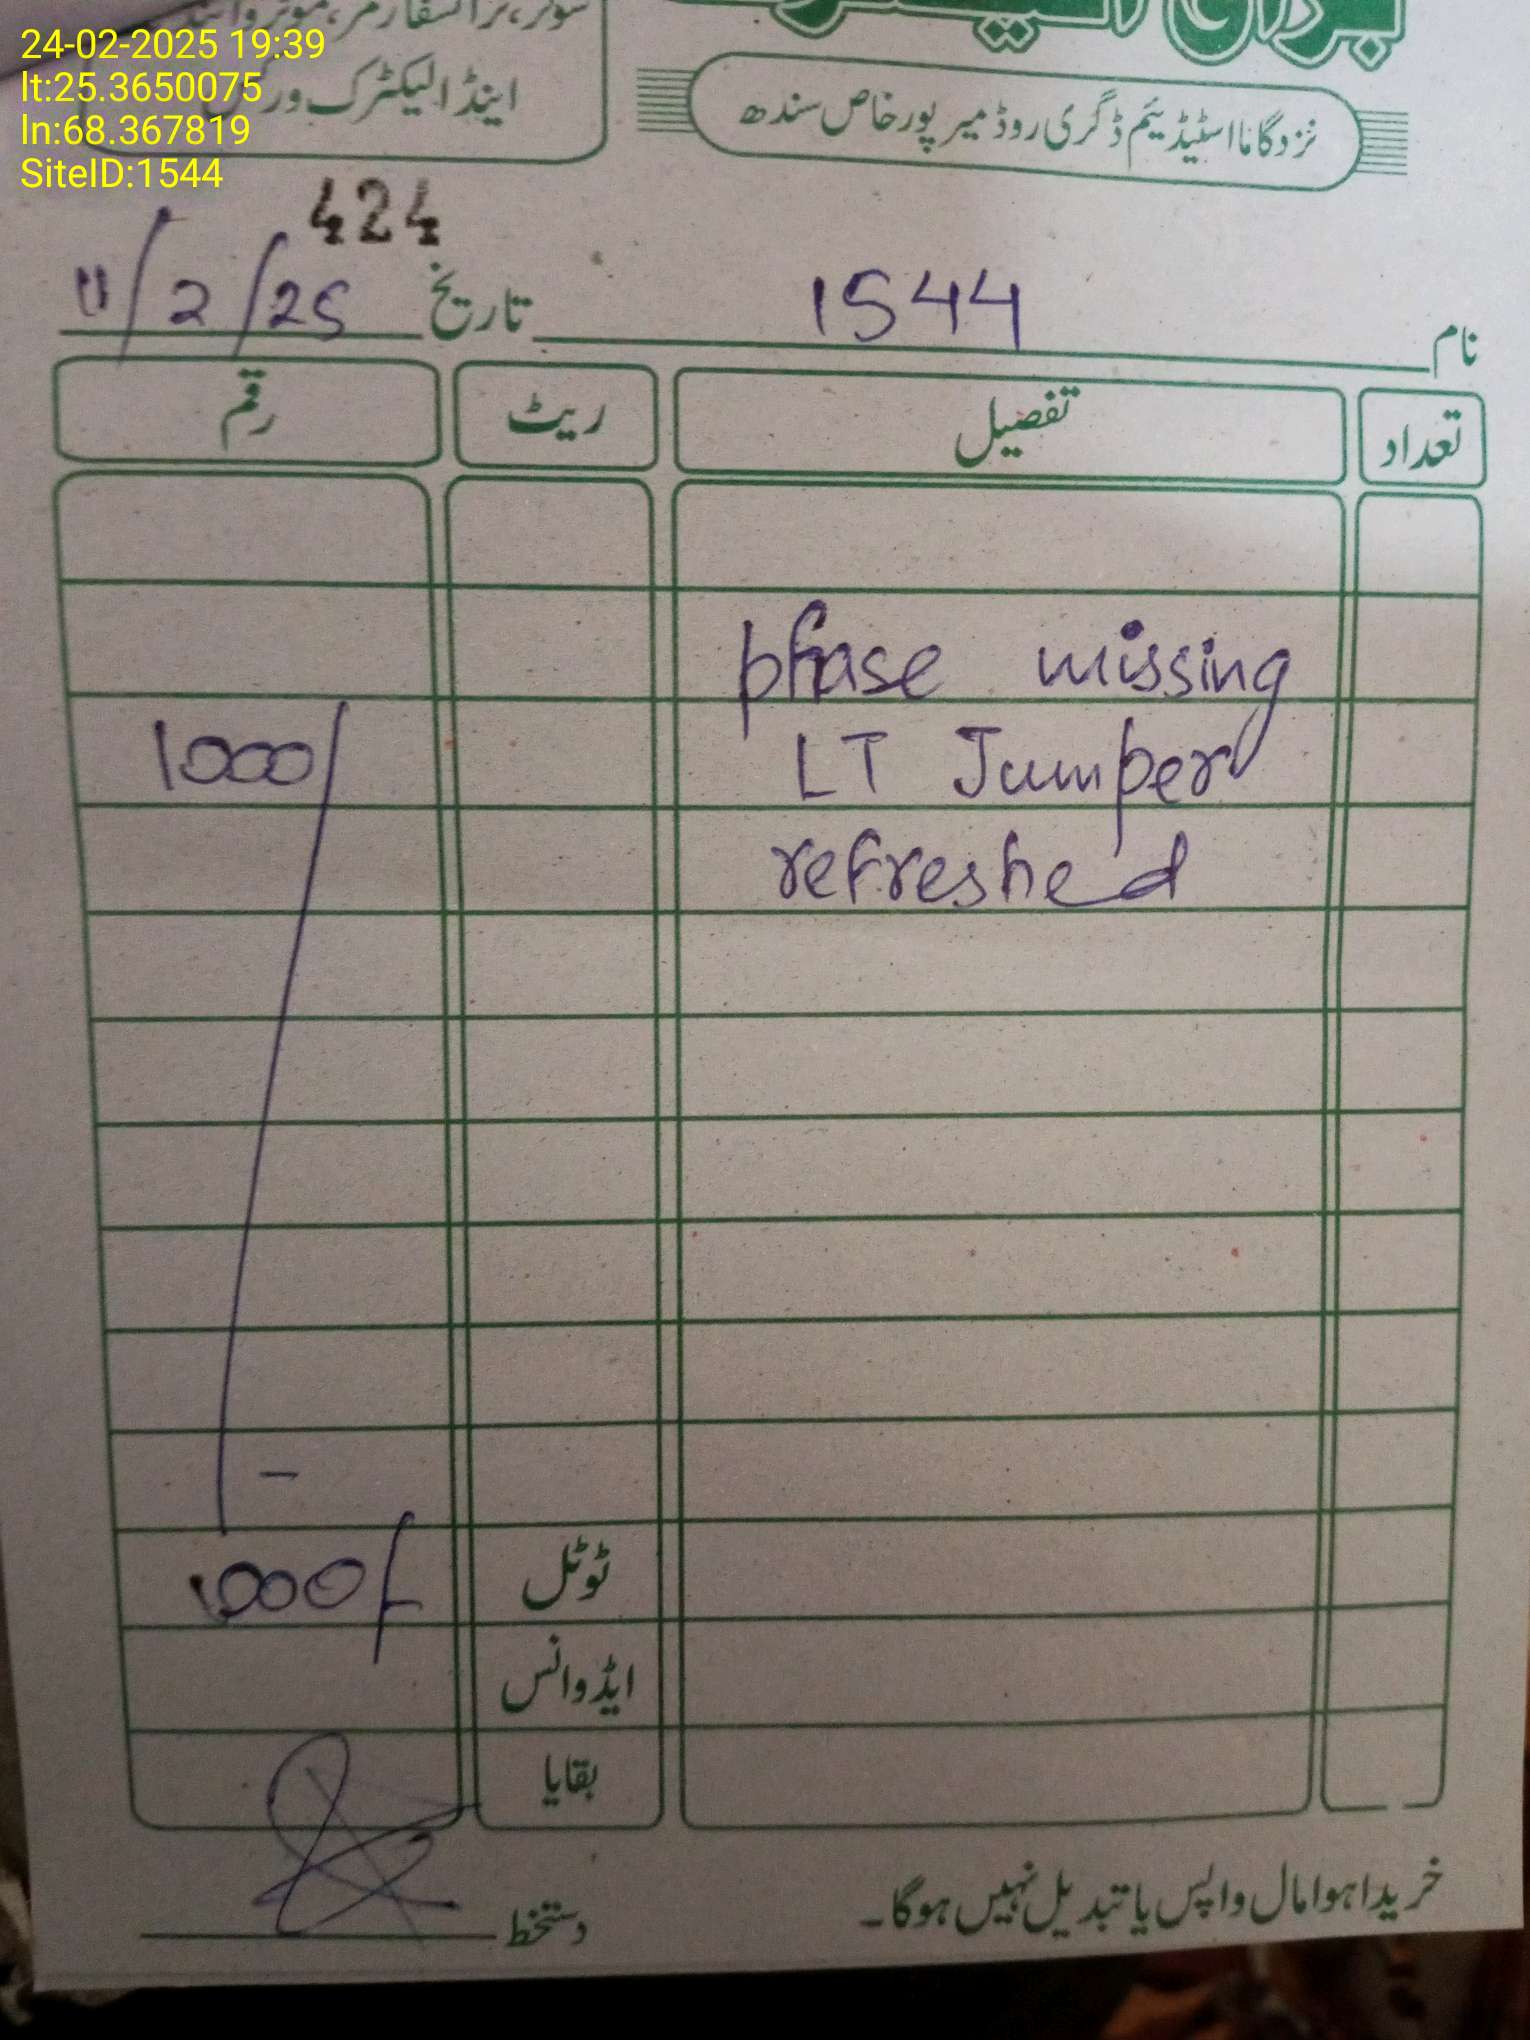 24-02-2025 19:39
lt:25.3650075
ln:68.367819
SiteID:1544
اینڈ الیکٹرک ورکس
نزد گاما اسٹیڈیئم ڈگری روڈ میرپورخاص سندھ
424
نام 1544 تاریخ 11/2/25
تعداد تفصیل ریٹ رقم
phase missing
LT Jumper 1000/
refreshed
-
ٹوٹل 1000/-
ایڈوانس
بقایا
خریدا ہوا مال واپس یا تبدیل نہیں ہوگا۔ دستخط